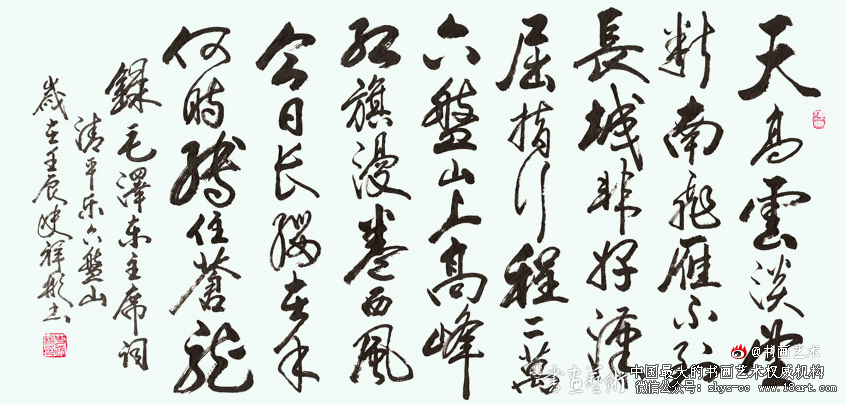 天高雲淡望
断南飛雁不到
長城非好漢
屈指行程二萬
六盤山上高峰
红旗漫卷西風
今日长缨在手
何時縛住蒼龍
錄毛澤东主席词
清平乐六盤山
歲在壬辰史祥书
書画藝術
@书画艺术
中国最大的书画艺术权威机构
微信公众号: shys-cc www.18art.com